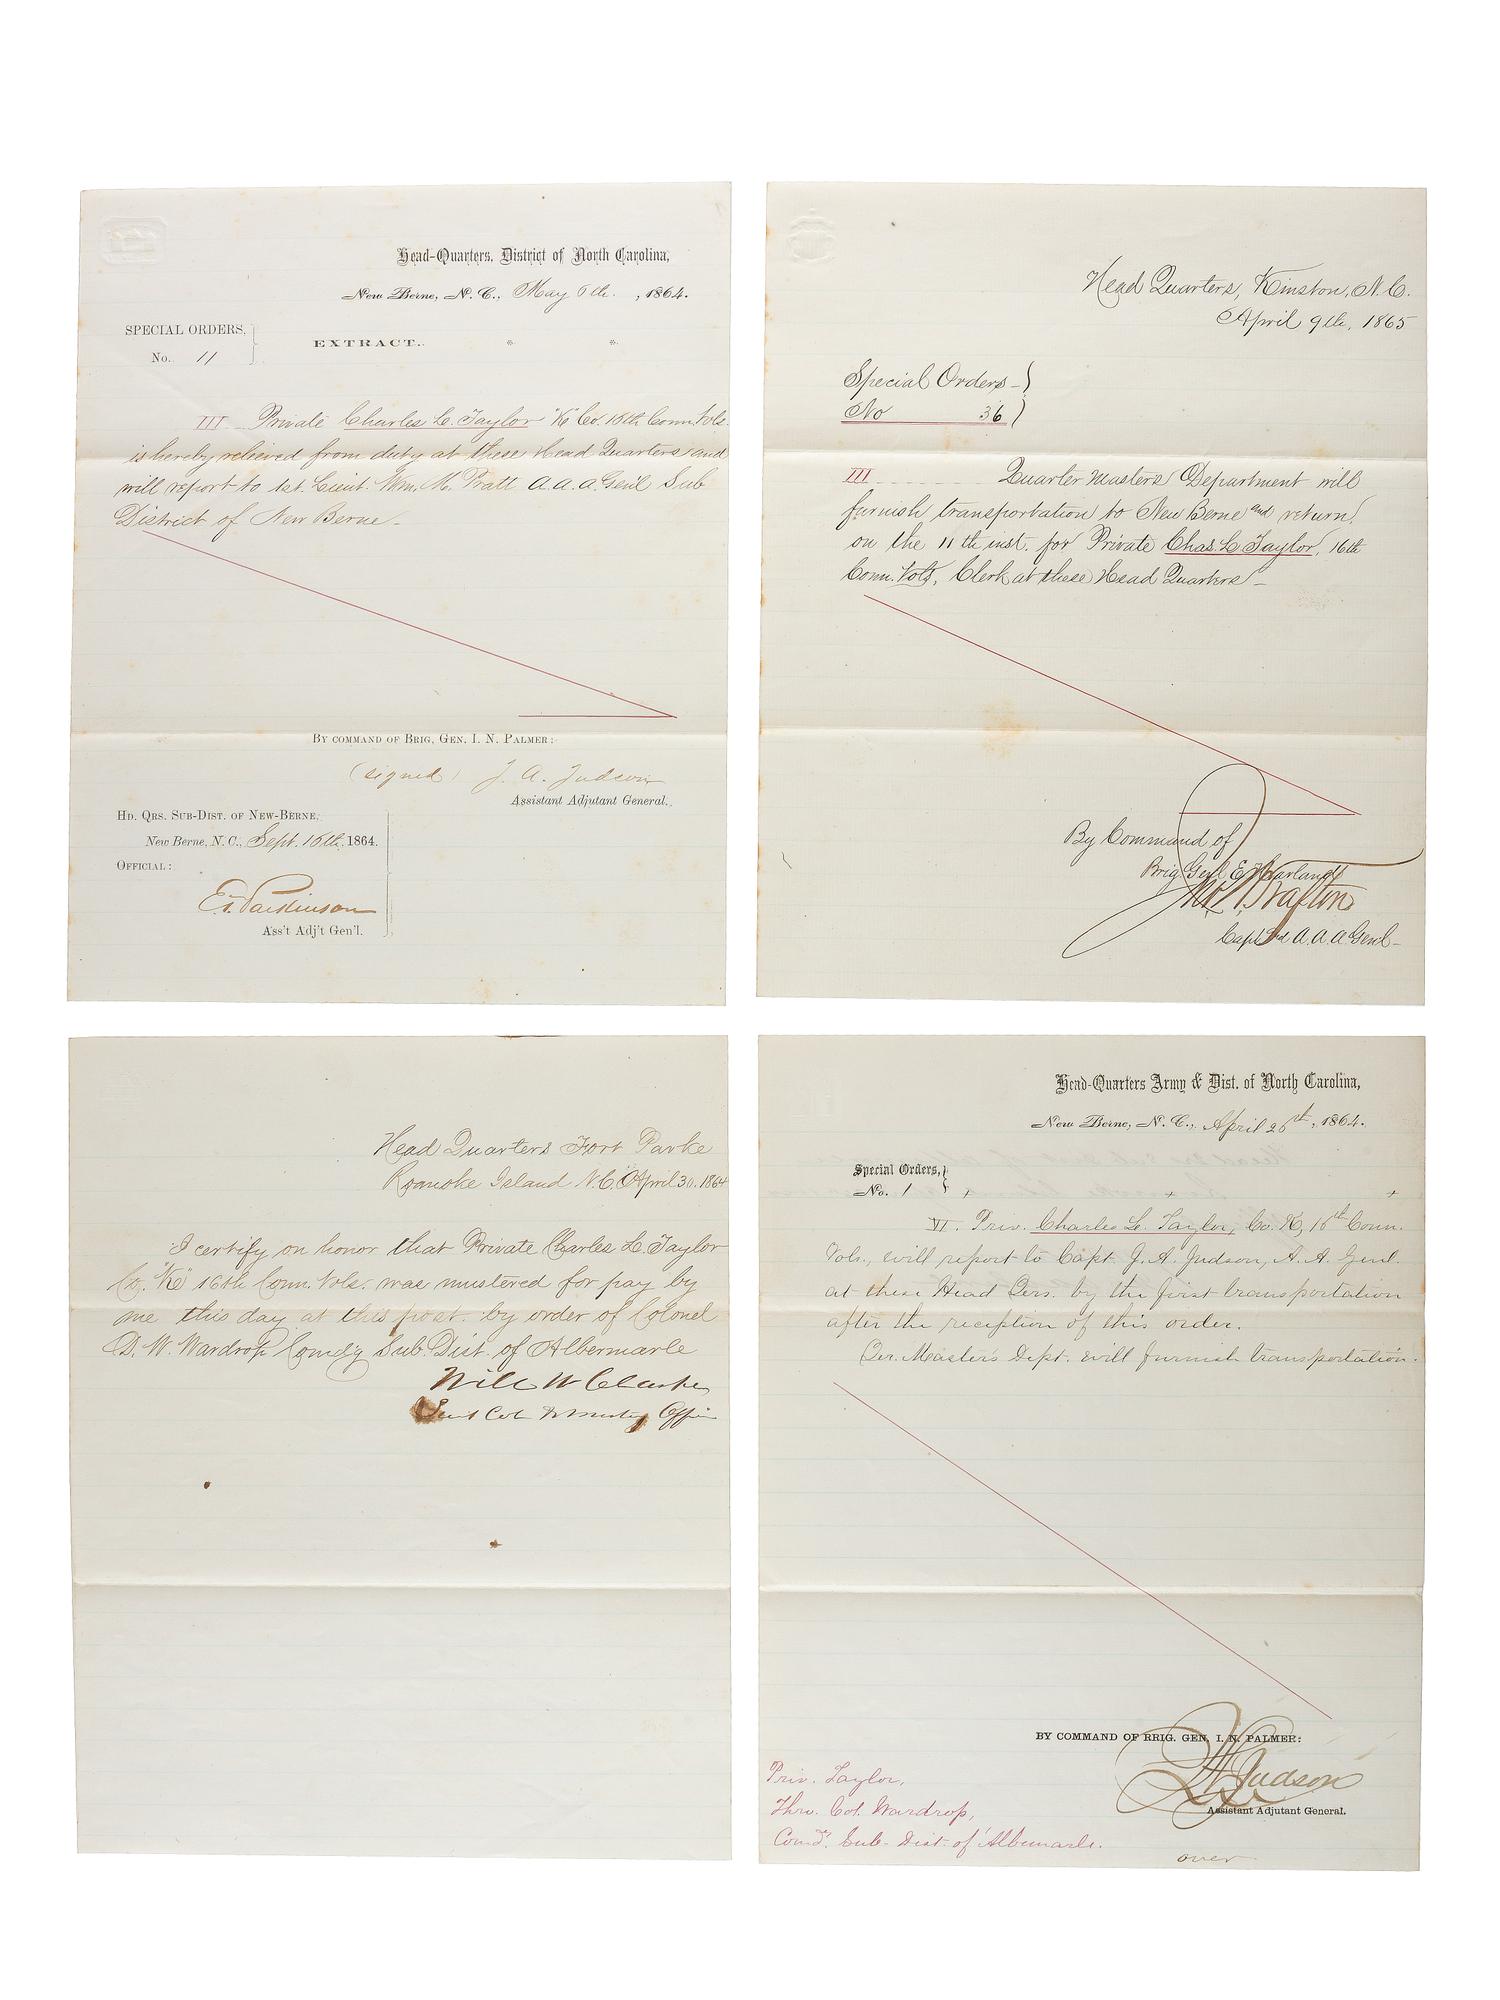 Head-Quarters, District of North Carolina,
New Berne, N. C., May 6th. , 1864.
SPECIAL ORDERS,
No. 11
EXTRACT. * *
III Private Charles L. Taylor "K" Co. 16th Conn. Vols.
is hereby relieved from duty at these Head Quarters and
will report to 1st. Lieut. Wm. M. Pratt A.A.A. Genl Sub
District of New Berne-
BY COMMAND OF BRIG, GEN. I. N. PALMER:
(signed) J. A. Judson
Assistant Adjutant General.
HD. QRS. SUB-DIST. OF NEW-BERNE,
New Berne, N. C., Sept. 16th, 1864.
OFFICIAL:
Parkinson
Ass't Adj't Gen'l.
Head Quarters, Kinston, N.C.
April 9th, 1865
Special Orders-
No 36
III Quarter Masters Department will
furnish transportation to New Berne and return,
on the 11th inst. for Private Chas. L. Taylor, 16th
Conn. Vols, Clerk at these Head Quarters-
By Command of
Brig. Genl E. Harland
Capt and A.A.A. Genl-
Head Quarters Fort Parke
Roanoke Island N.C. April 30. 1864
I certify on honor that Private Charles L. Taylor
Co. "K" 16th Conn. Vols. was mustered for pay by
me this day at this post. by order of Colonel
D. W. Wardrop Comd'g Sub. Dist. of Albermarle
Will W Clarke
Lieut Col & Musty Officer
Head-Quarters Army & Dist. of North Carolina,
New Berne, N. C., April 26th, 1864.
Special Orders,
No. 1 + + +
VI. Priv. Charles L. Taylor, Co. K, 16th Conn.
Vols., will report to Capt. J. A. Judson, A. A. Genl.
at these Head Qrs. by the first transportation
after the reception of this order.
Qr. Master's Dept. will furnish transportation.
BY COMMAND OF BRIG. GEN. I. N. PALMER:
J A Judson
Assistant Adjutant General.
Priv. Taylor,
Thro. Col. Wardrop,
Comd'g. Sub-Dist. of Albemarle.
over